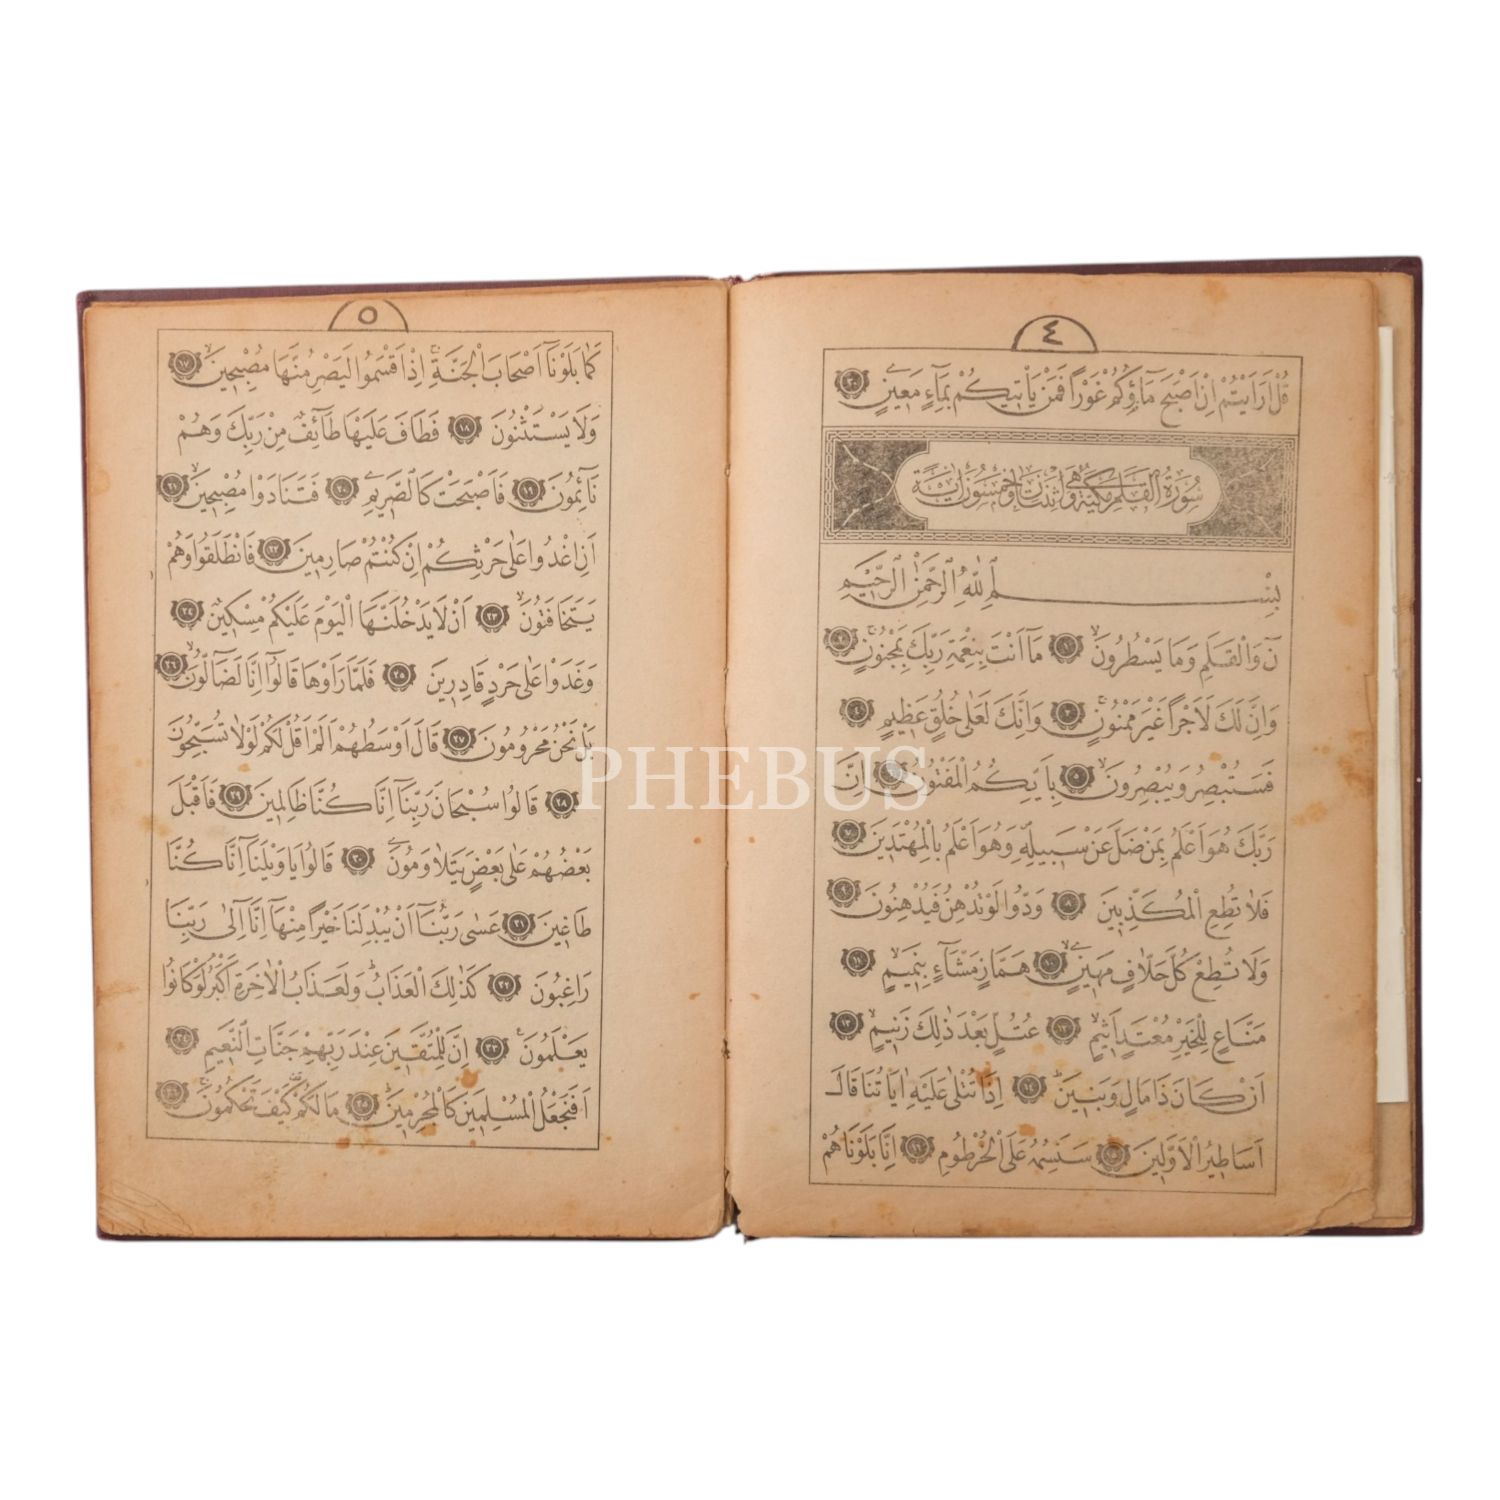 ٤
قُلْ اَرَاَيْتُمْ اِنْ اَصْبَحَ مَآؤُ۬كُمْ غَوْرًا فَمَنْ يَأْتِيكُمْ بِمَآءٍ مَعِينٍ ٣٠
سُورَةُ الْقَلَمِ مَكِّيَّةٌ وَهِيَ اثْنَتَانِ وَخَمْسُونَ اٰيَةً
بِسْمِ اللّٰهِ الرَّحْمٰنِ الرَّحِيمِ
نۤ وَالْقَلَمِ وَمَا يَسْطُرُونَ ١ مَآ اَنْتَ بِنِعْمَةِ رَبِّكَ بِمَجْنُونٍ ٢
وَاِنَّ لَكَ لَاَجْرًا غَيْرَ مَمْنُونٍ ٣ وَاِنَّكَ لَعَلٰى خُلُقٍ عَظِيمٍ ٤
فَسَتُبْصِرُ وَيُبْصِرُونَ ٥ بِاَيِّكُمُ الْمَفْتُونُ ٦ اِنَّ
رَبَّكَ هُوَ اَعْلَمُ بِمَنْ ضَلَّ عَنْ سَبِيلِهِ وَهُوَ اَعْلَمُ بِالْمُهْتَدِينَ ٧
فَلَا تُطِعِ الْمُكَذِّبِينَ ٨ وَدُّوا لَوْ تُدْهِنُ فَيُدْهِنُونَ ٩
وَلَا تُطِعْ كُلَّ حَلَّافٍ مَهِينٍ ١٠ هَمَّازٍ مَشَّآءٍ بِنَمِيمٍ ١١
مَنَّاعٍ لِلْخَيْرِ مُعْتَدٍ اَثِيمٍ ١٢ عُتُلٍّ بَعْدَ ذٰلِكَ زَنِيمٍ ١٣
اَنْ كَانَ ذَا مَالٍ وَبَنِينَ ١٤ اِذَا تُتْلٰى عَلَيْهِ اٰيَاتُنَا قَالَ
اَسَاطِيرُ الْاَوَّلِينَ ١٥ سَنَسِمُهُ عَلَى الْخُرْطُومِ ١٦ اِنَّا بَلَوْنَاهُمْ
٥
كَمَا بَلَوْنَآ اَصْحَابَ الْجَنَّةِ اِذْ اَقْسَمُوا لَيَصْرِمُنَّهَا مُصْبِحِينَ ١٧
وَلَا يَسْتَثْنُونَ ١٨ فَطَافَ عَلَيْهَا طَآئِفٌ مِنْ رَبِّكَ وَهُمْ
نَآئِمُونَ ١٩ فَاَصْبَحَتْ كَالصَّرِيمِ ٢٠ فَتَنَادَوْا مُصْبِحِينَ ٢١
اَنِ اغْدُوا عَلٰى حَرْثِكُمْ اِنْ كُنْتُمْ صَارِمِينَ ٢٢ فَانْطَلَقُوا وَهُمْ
يَتَخَافَتُونَ ٢٣ اَنْ لَا يَدْخُلَنَّهَا الْيَوْمَ عَلَيْكُمْ مِسْكِينٌ ٢٤
وَغَدَوْا عَلٰى حَرْدٍ قَادِرِينَ ٢٥ فَلَمَّا رَاَوْهَا قَالُوٓا اِنَّا لَضَآلُّونَ ٢٦
بَلْ نَحْنُ مَحْرُومُونَ ٢٧ قَالَ اَوْسَطُهُمْ اَلَمْ اَقُلْ لَكُمْ لَوْلَا تُسَبِّحُونَ
٢٨ قَالُوا سُبْحَانَ رَبِّنَآ اِنَّا كُنَّا ظَالِمِينَ ٢٩ فَاَقْبَلَ
بَعْضُهُمْ عَلٰى بَعْضٍ يَتَلَاوَمُونَ ٣٠ قَالُوا يَا وَيْلَنَآ اِنَّا كُنَّا
طَاغِينَ ٣١ عَسٰى رَبُّنَآ اَنْ يُبْدِلَنَا خَيْرًا مِنْهَآ اِنَّآ اِلٰى رَبِّنَا
رَاغِبُونَ ٣٢ كَذٰلِكَ الْعَذَابُ وَلَعَذَابُ الْاٰخِرَةِ اَكْبَرُ لَوْ كَانُوا
يَعْلَمُونَ ٣٣ اِنَّ لِلْمُتَّقِينَ عِنْدَ رَبِّهِمْ جَنَّاتِ النَّعِيمِ ٣٤
اَفَنَجْعَلُ الْمُسْلِمِينَ كَالْمُجْرِمِينَ ٣٥ مَا لَكُمْ كَيْفَ تَحْكُمُونَ ٣٦
PHEBUS